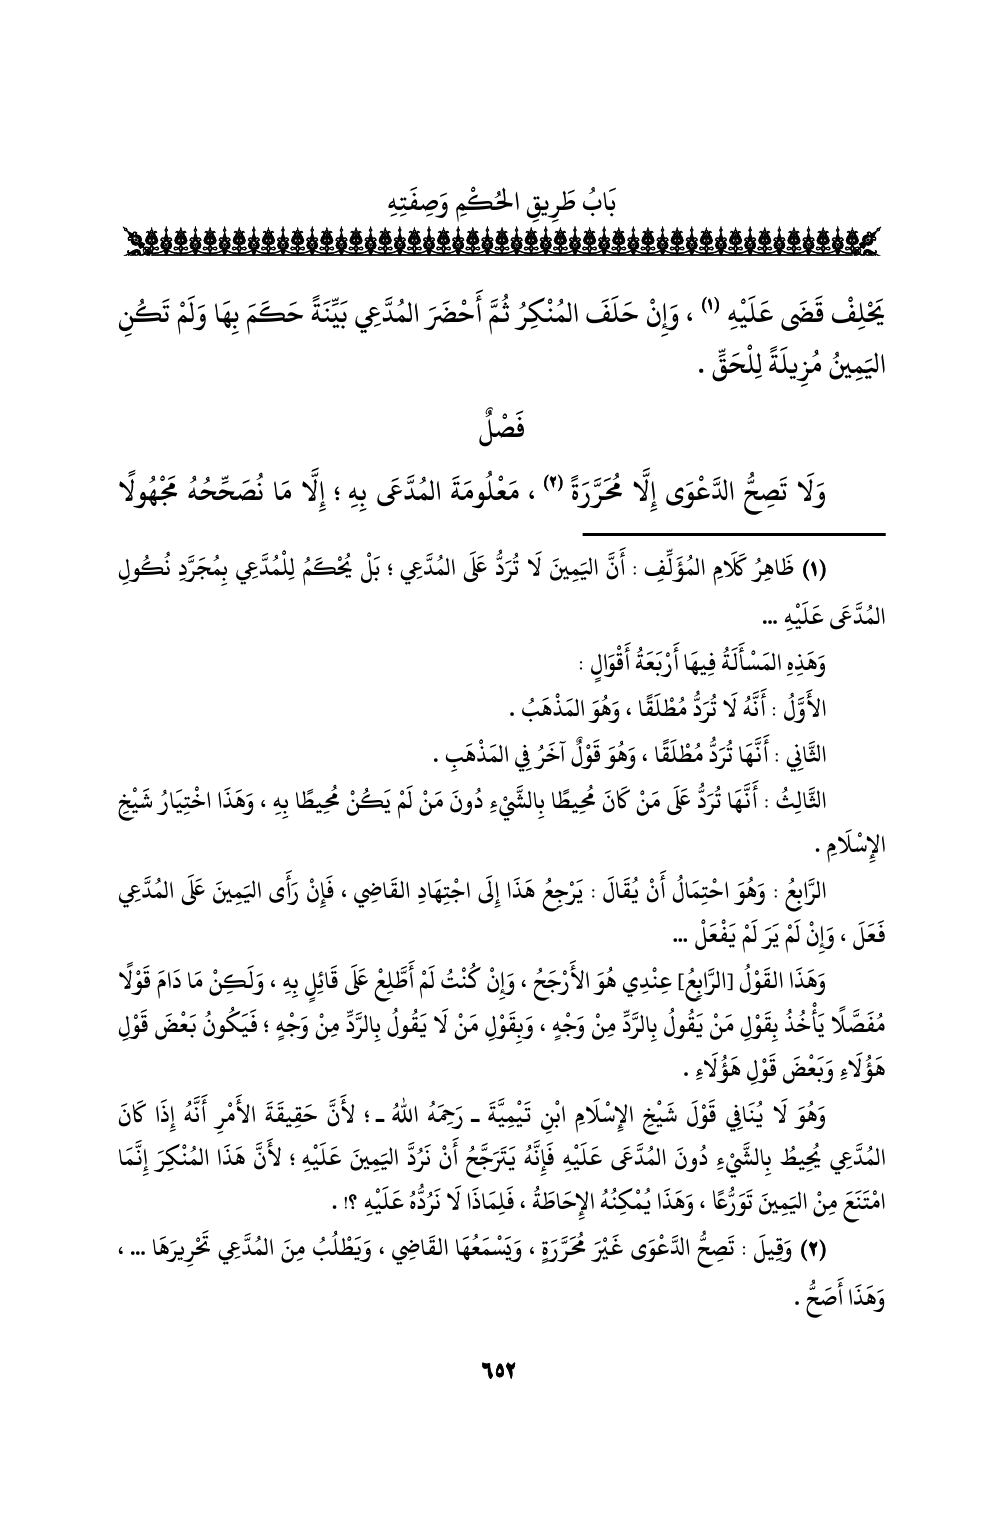 بَابُ طَرِيقِ الحُكْمِ وَصِفَتِهِ
يَحْلِفْ قَضَى عَلَيْهِ (١) ، وَإِنْ حَلَفَ المُنْكِرُ ثُمَّ أَحْضَرَ المُدَّعِي بَيِّنَةً حَكَمَ بِهَا وَلَمْ تَكُنِ
اليَمِينُ مُزِيلَةً لِلْحَقِّ .
فَصْلٌ
وَلَا تَصِحُّ الدَّعْوَى إِلَّا مُحَرَّرَةً (٢) ، مَعْلُومَةَ المُدَّعَى بِهِ ؛ إِلَّا مَا نُصَحِّحُهُ مَجْهُولًا
(١) ظَاهِرُ كَلَامِ المُؤَلِّفِ : أَنَّ اليَمِينَ لَا تُرَدُّ عَلَى المُدَّعِي ؛ بَلْ يُحْكَمُ لِلْمُدَّعِي بِمُجَرَّدِ نُكُولِ
المُدَّعَى عَلَيْهِ ...
وَهَذِهِ المَسْأَلَةُ فِيهَا أَرْبَعَةُ أَقْوَالٍ :
الأَوَّلُ : أَنَّهُ لَا تُرَدُّ مُطْلَقًا ، وَهُوَ المَذْهَبُ .
الثَّانِي : أَنَّهَا تُرَدُّ مُطْلَقًا ، وَهُوَ قَوْلٌ آخَرُ فِي المَذْهَبِ .
الثَّالِثُ : أَنَّهَا تُرَدُّ عَلَى مَنْ كَانَ مُحِيطًا بِالشَّيْءِ دُونَ مَنْ لَمْ يَكُنْ مُحِيطًا بِهِ ، وَهَذَا اخْتِيَارُ شَيْخِ
الإِسْلَامِ .
الرَّابِعُ : وَهُوَ احْتِمَالُ أَنْ يُقَالَ : يَرْجِعُ هَذَا إِلَى اجْتِهَادِ القَاضِي ، فَإِنْ رَأَى اليَمِينَ عَلَى المُدَّعِي
فَعَلَ ، وَإِنْ لَمْ يَرَ لَمْ يَفْعَلْ ...
وَهَذَا القَوْلُ [الرَّابِعُ] عِنْدِي هُوَ الأَرْجَحُ ، وَإِنْ كُنْتُ لَمْ أَطَّلِعْ عَلَى قَائِلٍ بِهِ ، وَلَكِنْ مَا دَامَ قَوْلًا
مُفَصَّلًا يَأْخُذُ بِقَوْلِ مَنْ يَقُولُ بِالرَّدِّ مِنْ وَجْهٍ ، وَبِقَوْلِ مَنْ لَا يَقُولُ بِالرَّدِّ مِنْ وَجْهٍ ؛ فَيَكُونُ بَعْضَ قَوْلِ
هَؤُلَاءِ وَبَعْضَ قَوْلِ هَؤُلَاءِ .
وَهُوَ لَا يُنَافِي قَوْلَ شَيْخِ الإِسْلَامِ ابْنِ تَيْمِيَّةَ ـ رَحِمَهُ اللهُ ـ ؛ لأَنَّ حَقِيقَةَ الأَمْرِ أَنَّهُ إِذَا كَانَ
المُدَّعِي يُحِيطُ بِالشَّيْءِ دُونَ المُدَّعَى عَلَيْهِ فَإِنَّهُ يَتَرَجَّحُ أَنْ نَرُدَّ اليَمِينَ عَلَيْهِ ؛ لأَنَّ هَذَا المُنْكِرَ إِنَّمَا
امْتَنَعَ مِنْ اليَمِينَ تَوَرُّعًا ، وَهَذَا يُمْكِنُهُ الإِحَاطَةُ ، فَلِمَاذَا لَا نَرُدُّهُ عَلَيْهِ ؟! .
(٢) وَقِيلَ : تَصِحُّ الدَّعْوَى غَيْرَ مُحَرَّرَةٍ ، وَيَسْمَعُهَا القَاضِي ، وَيَطْلُبُ مِنَ المُدَّعِي تَحْرِيرَهَا ... ،
وَهَذَا أَصَحُّ .
٦٥٢